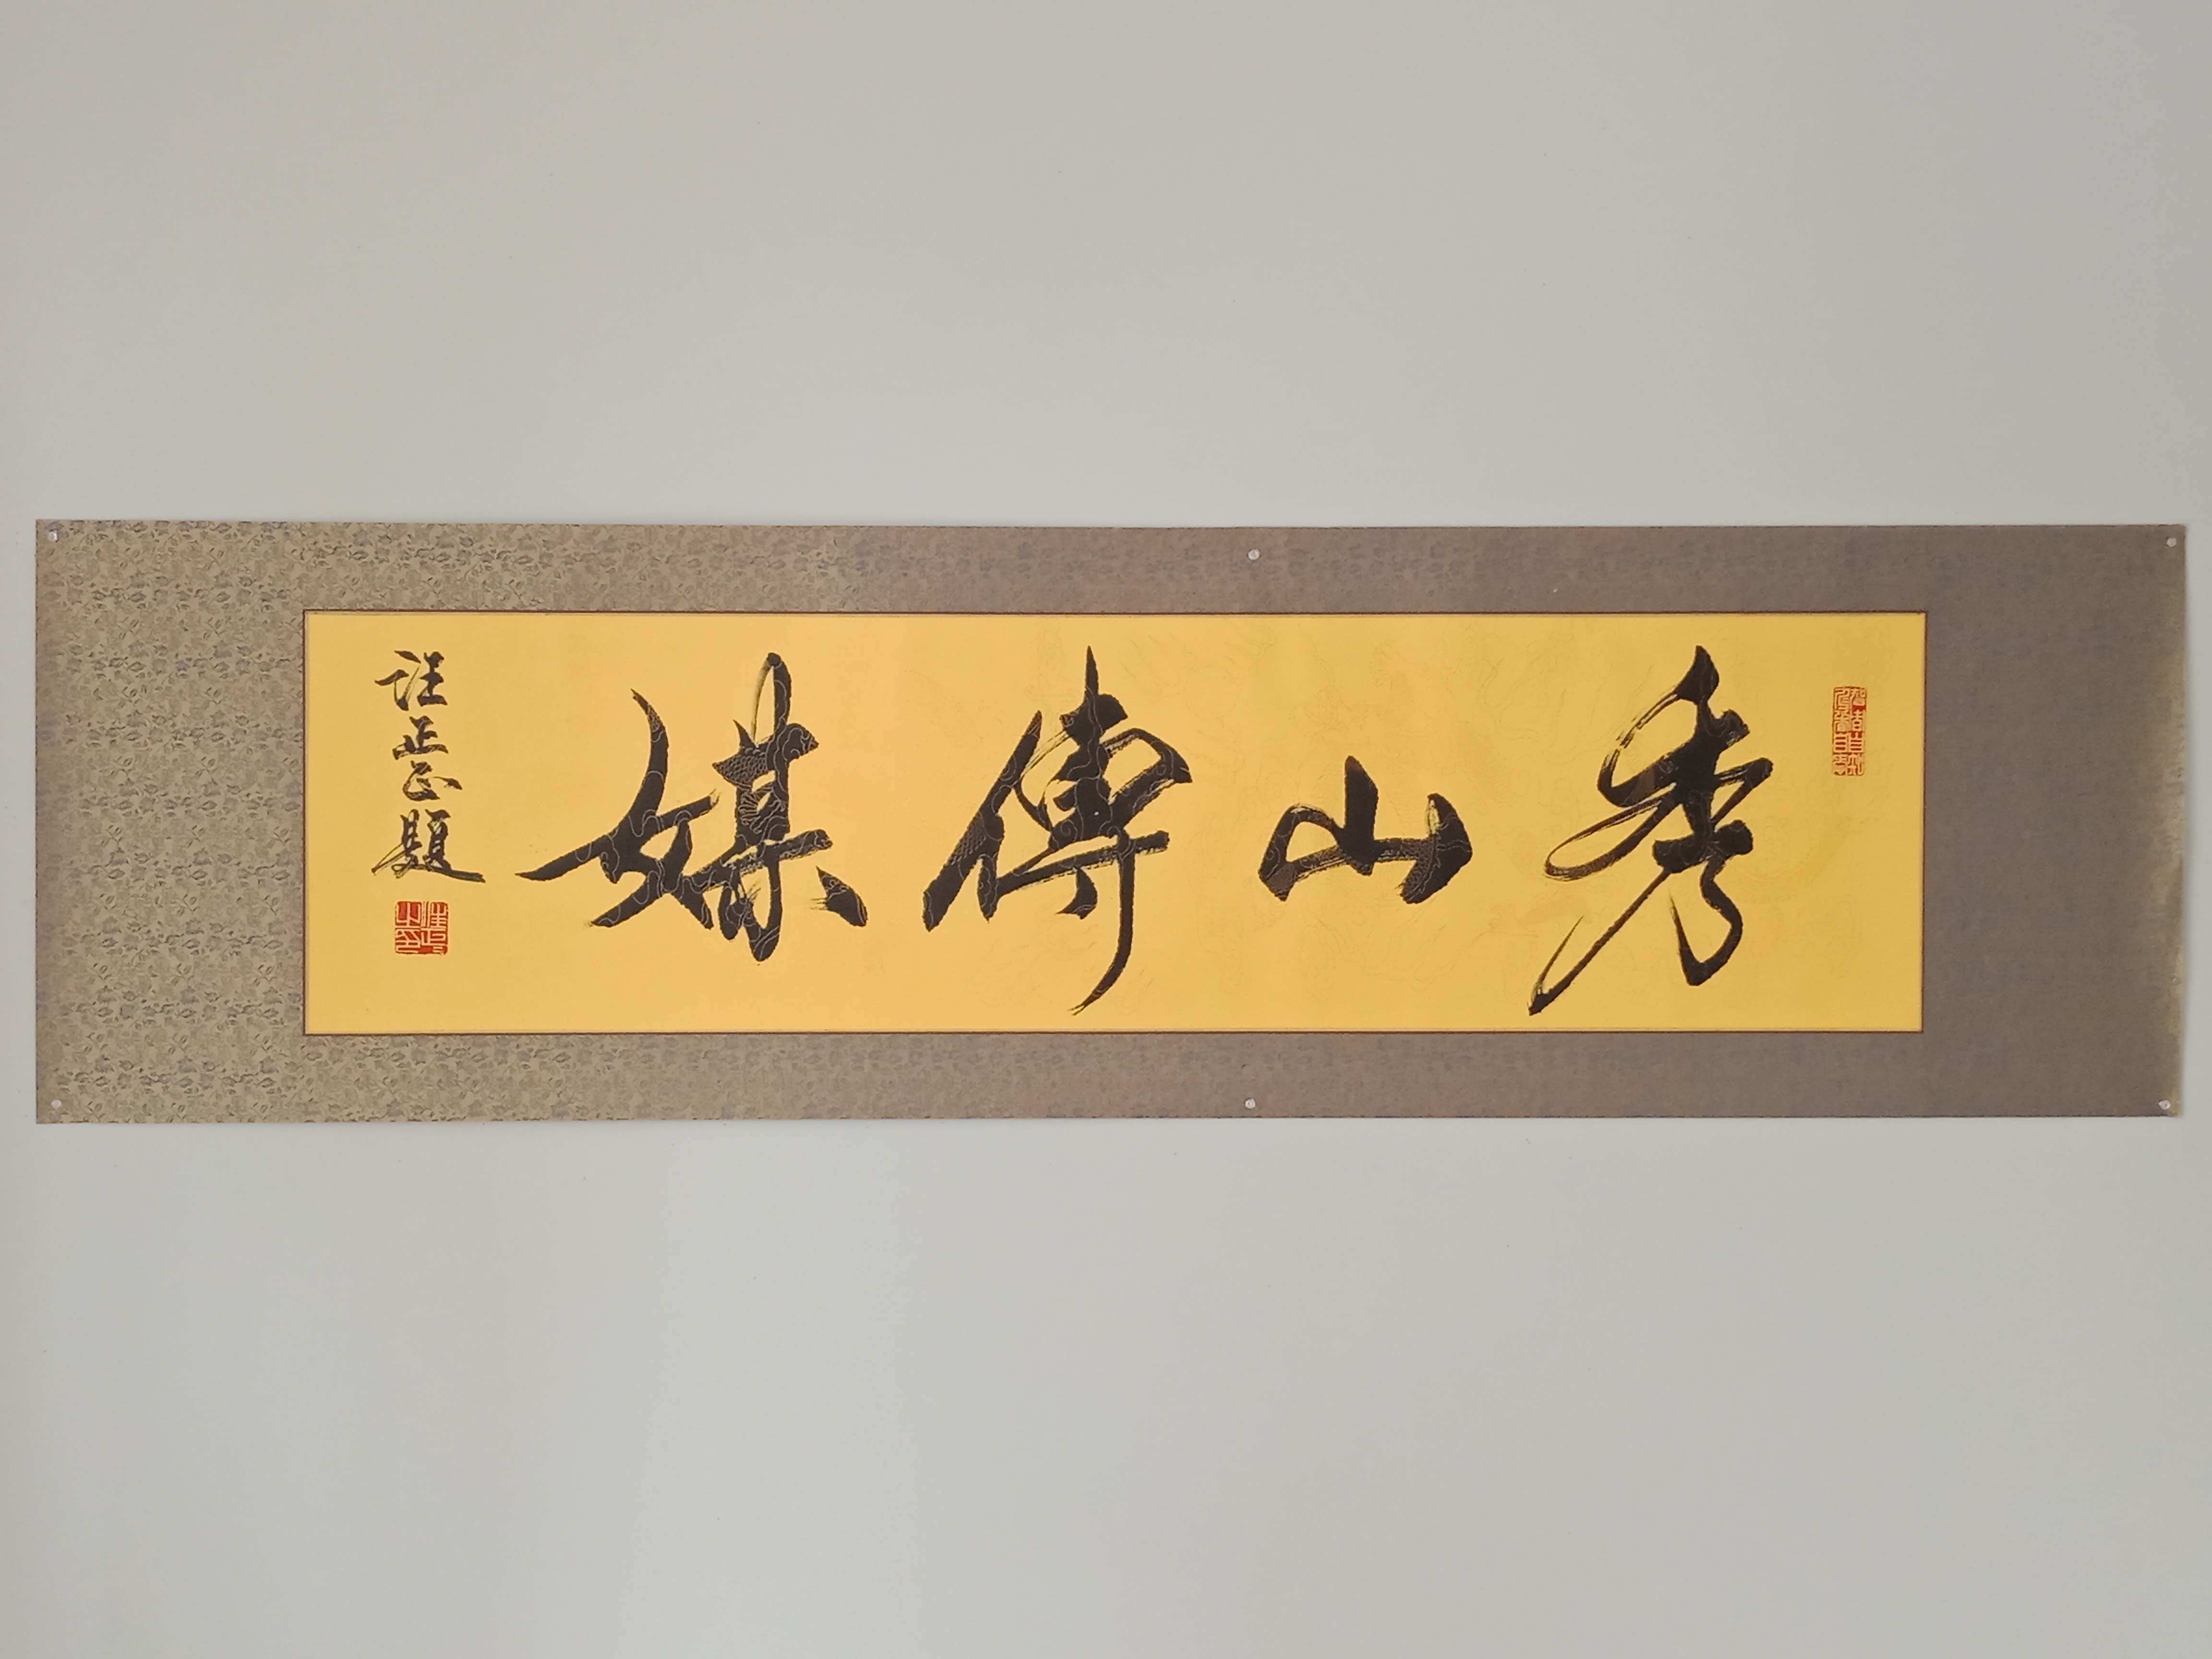 秀山傳媒
汪正正題